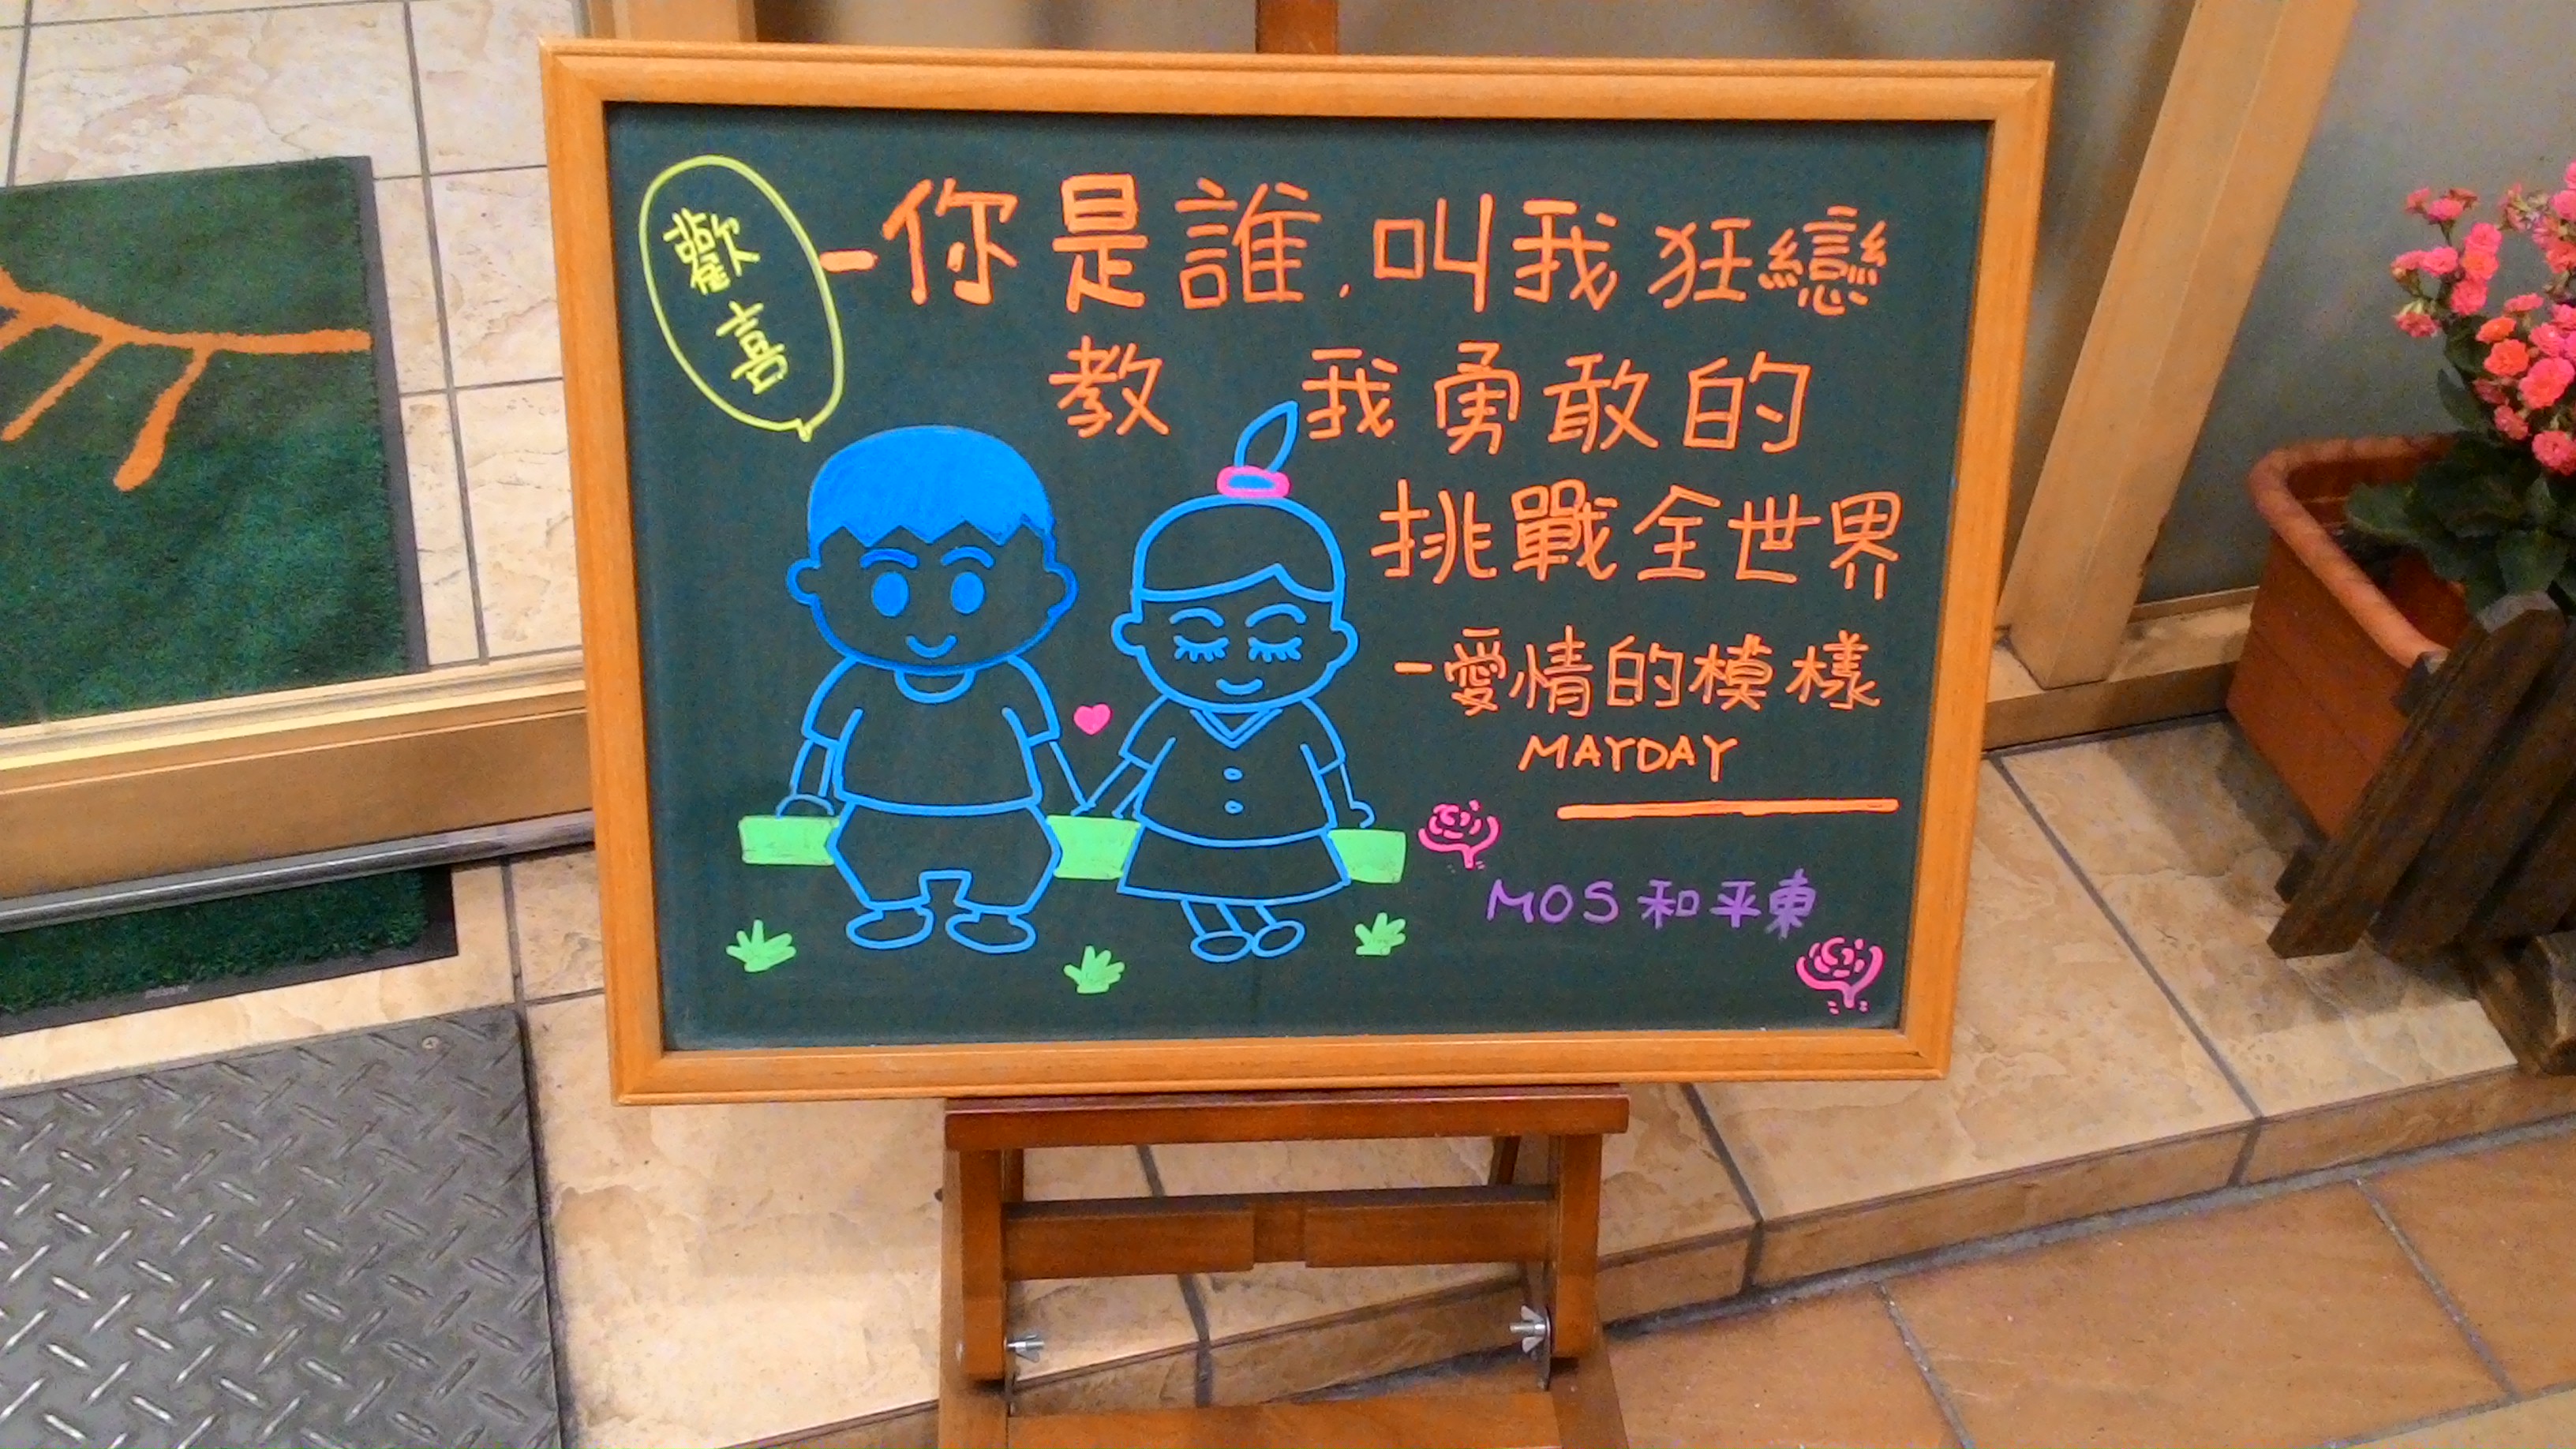 歡喜
-你是誰,叫我狂戀
教 我勇敢的
挑戰全世界
-愛情的模樣
MAYDAY
MOS 和平東